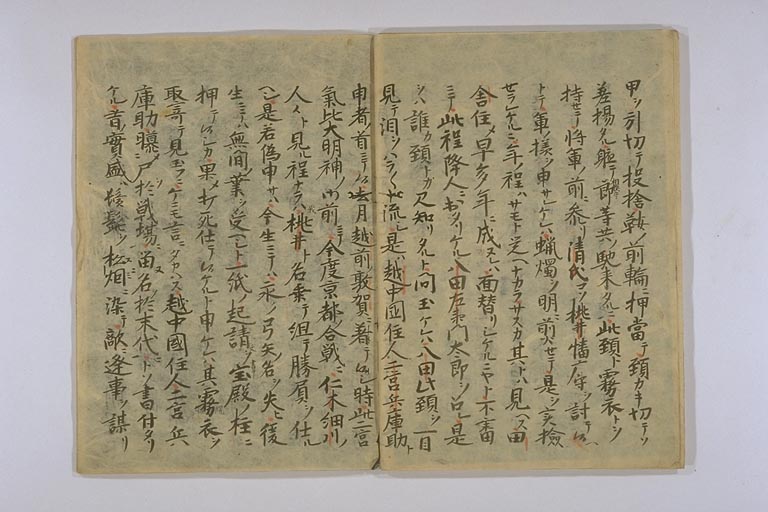 甲ヲ引切テ投捨鞍ノ前輪ニ押當テ頸カキ切テソ
差揚タル軈テ郎等共ノ馳来タルニ此頸ト霧衣トヲ
持セテ将軍ノ前ニ参リ清氏コソ桃井播广守ヲ討テ候ヘ
トテ軍ノ様ヲ申サレケレハ蝋燭ヲ明ニ前ヘサセテ是ヲ実撿
セラレケルニ年ノ程ハサモト覚ヘナカラサスカ其トハ見ヘス田
舎住メ早多年ニ成ヌレハ面替リシケルニヤト不審
ニテ此程降人ニ出タリケル八田左衛門太郎ヲ召レ是
ヲハ誰カ頸トカ見知リタルト問玉ケレハ八田此頸ヲ一目
見テ泪ヲハラ〱ト流シ是ハ越中國住人二宮兵庫助ト
申者ノ首ニテ候去月越前ノ敦賀ニ著テ候シ時此二宮
氣比大明神ノ御前ニテ今度京都ノ合戦ニ仁木細川ノ
人々ト見ル程ナラハ桃井ト名乗テ組テ勝負ヲ仕ル
ヘシ是若偽申サハ今生ニテハ永ク弓矢ノ名ヲ失ヒ後
生ニテハ無間ノ業ヲ受ヘシト一紙ノ起請ヲ宝殿ノ柱ニ
押テ候シカ果メ打死仕テ候ケルト申ケレハ其霧衣ヲ
取寄テ見玉フニケニモ言ニタカハス越中國住人二宮兵
庫助曝ニ尸於戦場留名於末代トソ書付タリ
ケル昔ノ實盛ハ鬢髭ヲ松烟ニ染テ敵ニ逢事ヲ謀リ